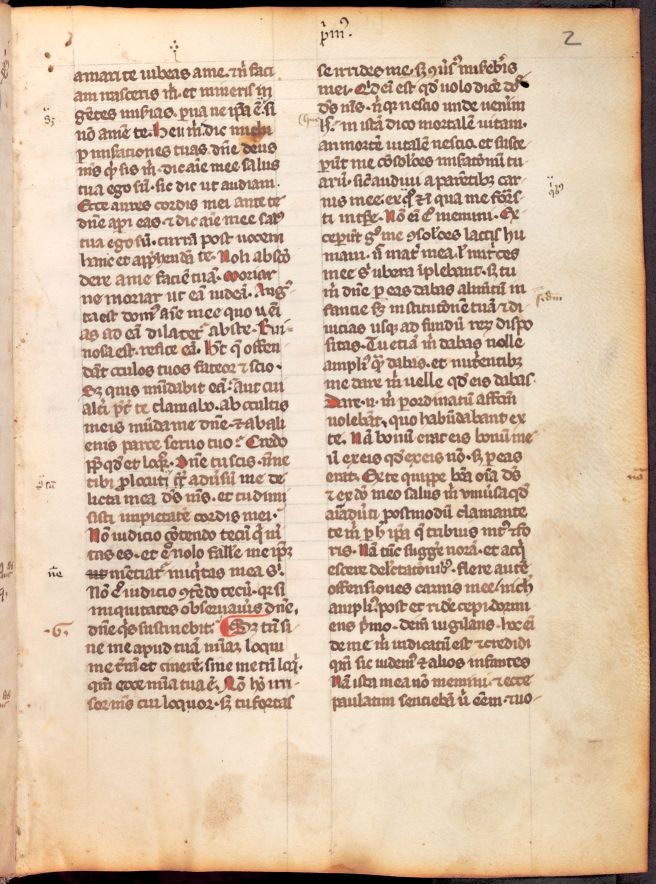 prim⁹
2
amari te iubeas a me. et nͥ faci
am irasceris mͥ. et mineris in
gētes miſias. parua ne ip̄a ē. si
nō amē te. heu mͥ. dic michi
ꝑ miſationes tuas. dn̄e deus
ms̄ qͥd sis mͥ. dic aīe mee salus
tua ego sū. sic dic ut audiam.
Ecce aures cordis mei ante te
dn̄e aperi eas ⁊ dic aīe mee salus
tua ego sū. currā post uocem
hanc et app̄hendā te. Noli abscō
dere a me faciē tuā. moriar
ne moriar ut eā uideā. Angus
ta est dom⁹ aīe mee quo ueni
as ad eā dilatet᷑ abs te. Rui
nosa est. refice eā. Hꝫ q̄ offen
dāt oculos tuos fateor ⁊ scio.
Sꝫ quis mūdabit eā. aut cui
alt̓i p̄t̓ te clamabo. ab occultis
meis mūda me dn̄e. ⁊ ab ali
enis parce seruo tuo. Credo
ꝓp̄t̓ qd̓ et loqͦr. Dn̄e tu scis. nōne
tibi ꝓlocutꝰ sū adūsū me de
licta mea ds̄ ms̄. et tu dimi
sisti impietatē cordis mei.
Nō iudicio ꝯtendo tecū qͥ ueri
tas es. et ego nolo fallē me ip̄ꝫ
ne mentiat᷑ iniqͥtas mea sͥ.
Nō g̊ iudicio ꝯtēdo tecū. qꝛ si
iniquitates obseruaūis dn̄e.
dn̄e qͥs sustinebit. Sꝫ tn̄ si
ne me apud tuā mīaꝫ loqui
me t̓rā et cinerē. sine me tn̄ loqͥ.
qm̄ ecce mīa tua ē. Nō hō irri
sor ms̄ cui loquor. sꝫ tu fortas
se irrides me. sꝫ ꝯūsꝰ misebͥis
mei. Qͥd eī est qd̓ uolo dicē dn̄e
ds̄ ms̄. nͥ qꝛ nescio unde uenīm
huc. in istā dico mortalē uitam.
an mortē uitalē nescio. et susce
perūt me ꝯsolōes miſatōnū tu
arū. sic̄ audiui a parētibꝫ car
nis mee. ex qͦ ⁊ in qua me formas
ti in tp̄e. Nō eī ego memini. Ex
cepūt g̊ me ꝯsolōes lactis hu
mani. nͨ mat̓ mea. ul̓ nutͥces
mee sͥ ubera īplebant. sꝫ tu
mͥ dn̄e ꝑ eas dabas alimtū in
fancie scd̓m institutōnē tuā ⁊ di
uicias usqꝫ ad fundū reꝝ dispo
sitas. Tu etiā mͥ dabas nolle
ampliꝰ q̄ dabas. et nutͥentibꝫ
me dare mͥ uelle qd̓ eis dabas.
Dare. n. mͥ ꝑ ordinatū affectū
uolebāt. quo habūdabant ex
te. Nā bonū erat eis bonū me
ū ex eis qd̓ ex eis nō. sꝫ ꝑ eas
erat. Ex te quippe bōa oīa ds̄
⁊ ex dō meo salus mͥ uniūsa. qd̓
aīaduti postmodū clamante
te mͥ ꝑ hͨ ip̄a q̄ tribuis intꝰ ⁊ fo
ris. Nā tūc suggē norā. et acqͥ
escere delectatōibꝫ. flere autē
offensiones carnis mee. nichil
ampliꝰ. post et ridē cepi dormi
ens pͥmo. dein̄ uigilans. hoc eī
de me mͥ indicatū est ⁊ credidi
qm̄ sic uidemꝰ ⁊ alios infantes
Nā ista mea nō memini. ⁊ ecce
paulatim sentiebā ubi eēm. ⁊ uo
.6.